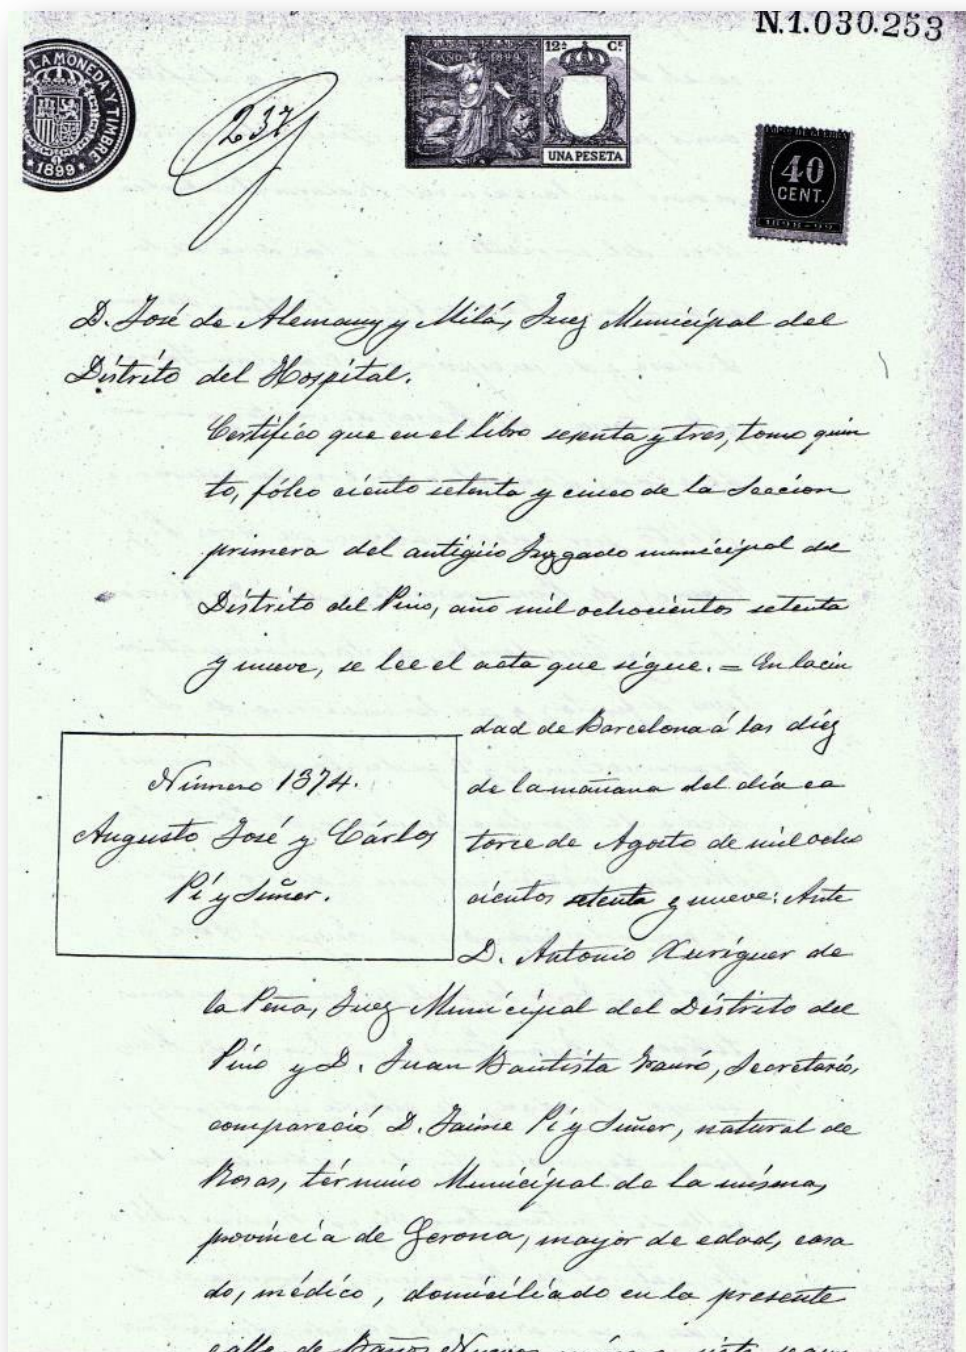 N.1.030.253
LA MONEDA Y TIMBRE
1899
237
AÑO 1899
12ª Cᵉ
UNA PESETA
40
CENT.
1898-99
D. José de Alemany y Milá, Juez Municipal del
Distrito del Hospital.
Certifico que en el libro sesenta y tres, tomo quin
to, fólio ciento setenta y cinco de la Seccion
primera del antigüo Juzgado municipal del
Distrito del Pino, año mil ochocientos setenta
y nueve, se lee el acta que sigue. = En la ciu
dad de Barcelona á las diéz
de la mañana del día ca
torce de Agosto de mil ocho
cientos setenta y nueve: Ante
Número 1374.
Augusto José y Cárlos
Pí y Suñer.
D. Antonio Xuriguer de
la Peña, Juez Municipal del Distrito del
Pino y D. Juan Bautista Fauró, Secretario,
compareció D. Jaime Pí y Suñer, natural de
Rosas, término Municipal de la misma,
provincia de Gerona, mayor de edad, casa
do, médico, domiciliado en la presente
calle de Baños Nuevos